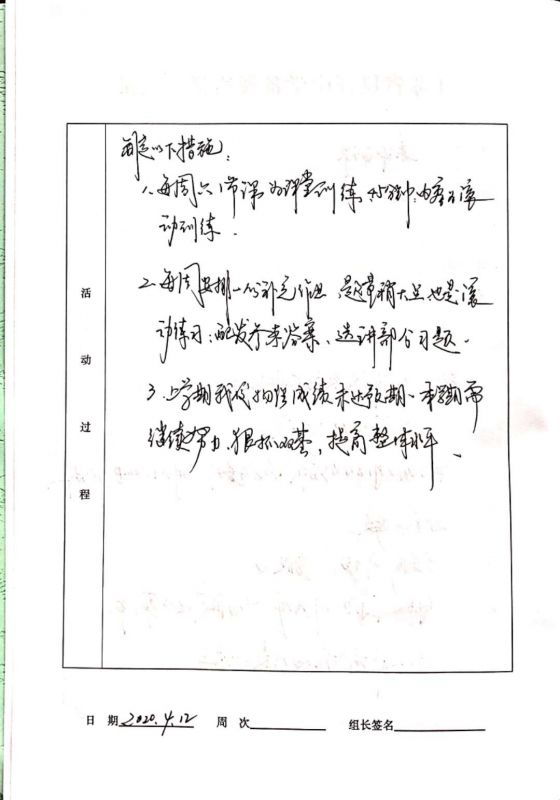 制定以下措施:
1、每周六1节课为课堂训练 45分钟,内容为滚
动训练.
2、每周安排一份补充作业 题量稍大且也是滚
动练习;配发参考答案、选讲部分习题.
3、上学期我校 成绩未达预期、本学期需
继续努力,狠抓双基,提高整体水平、
活
动
过
程
日 期 2020.4.12 周 次 组长签名